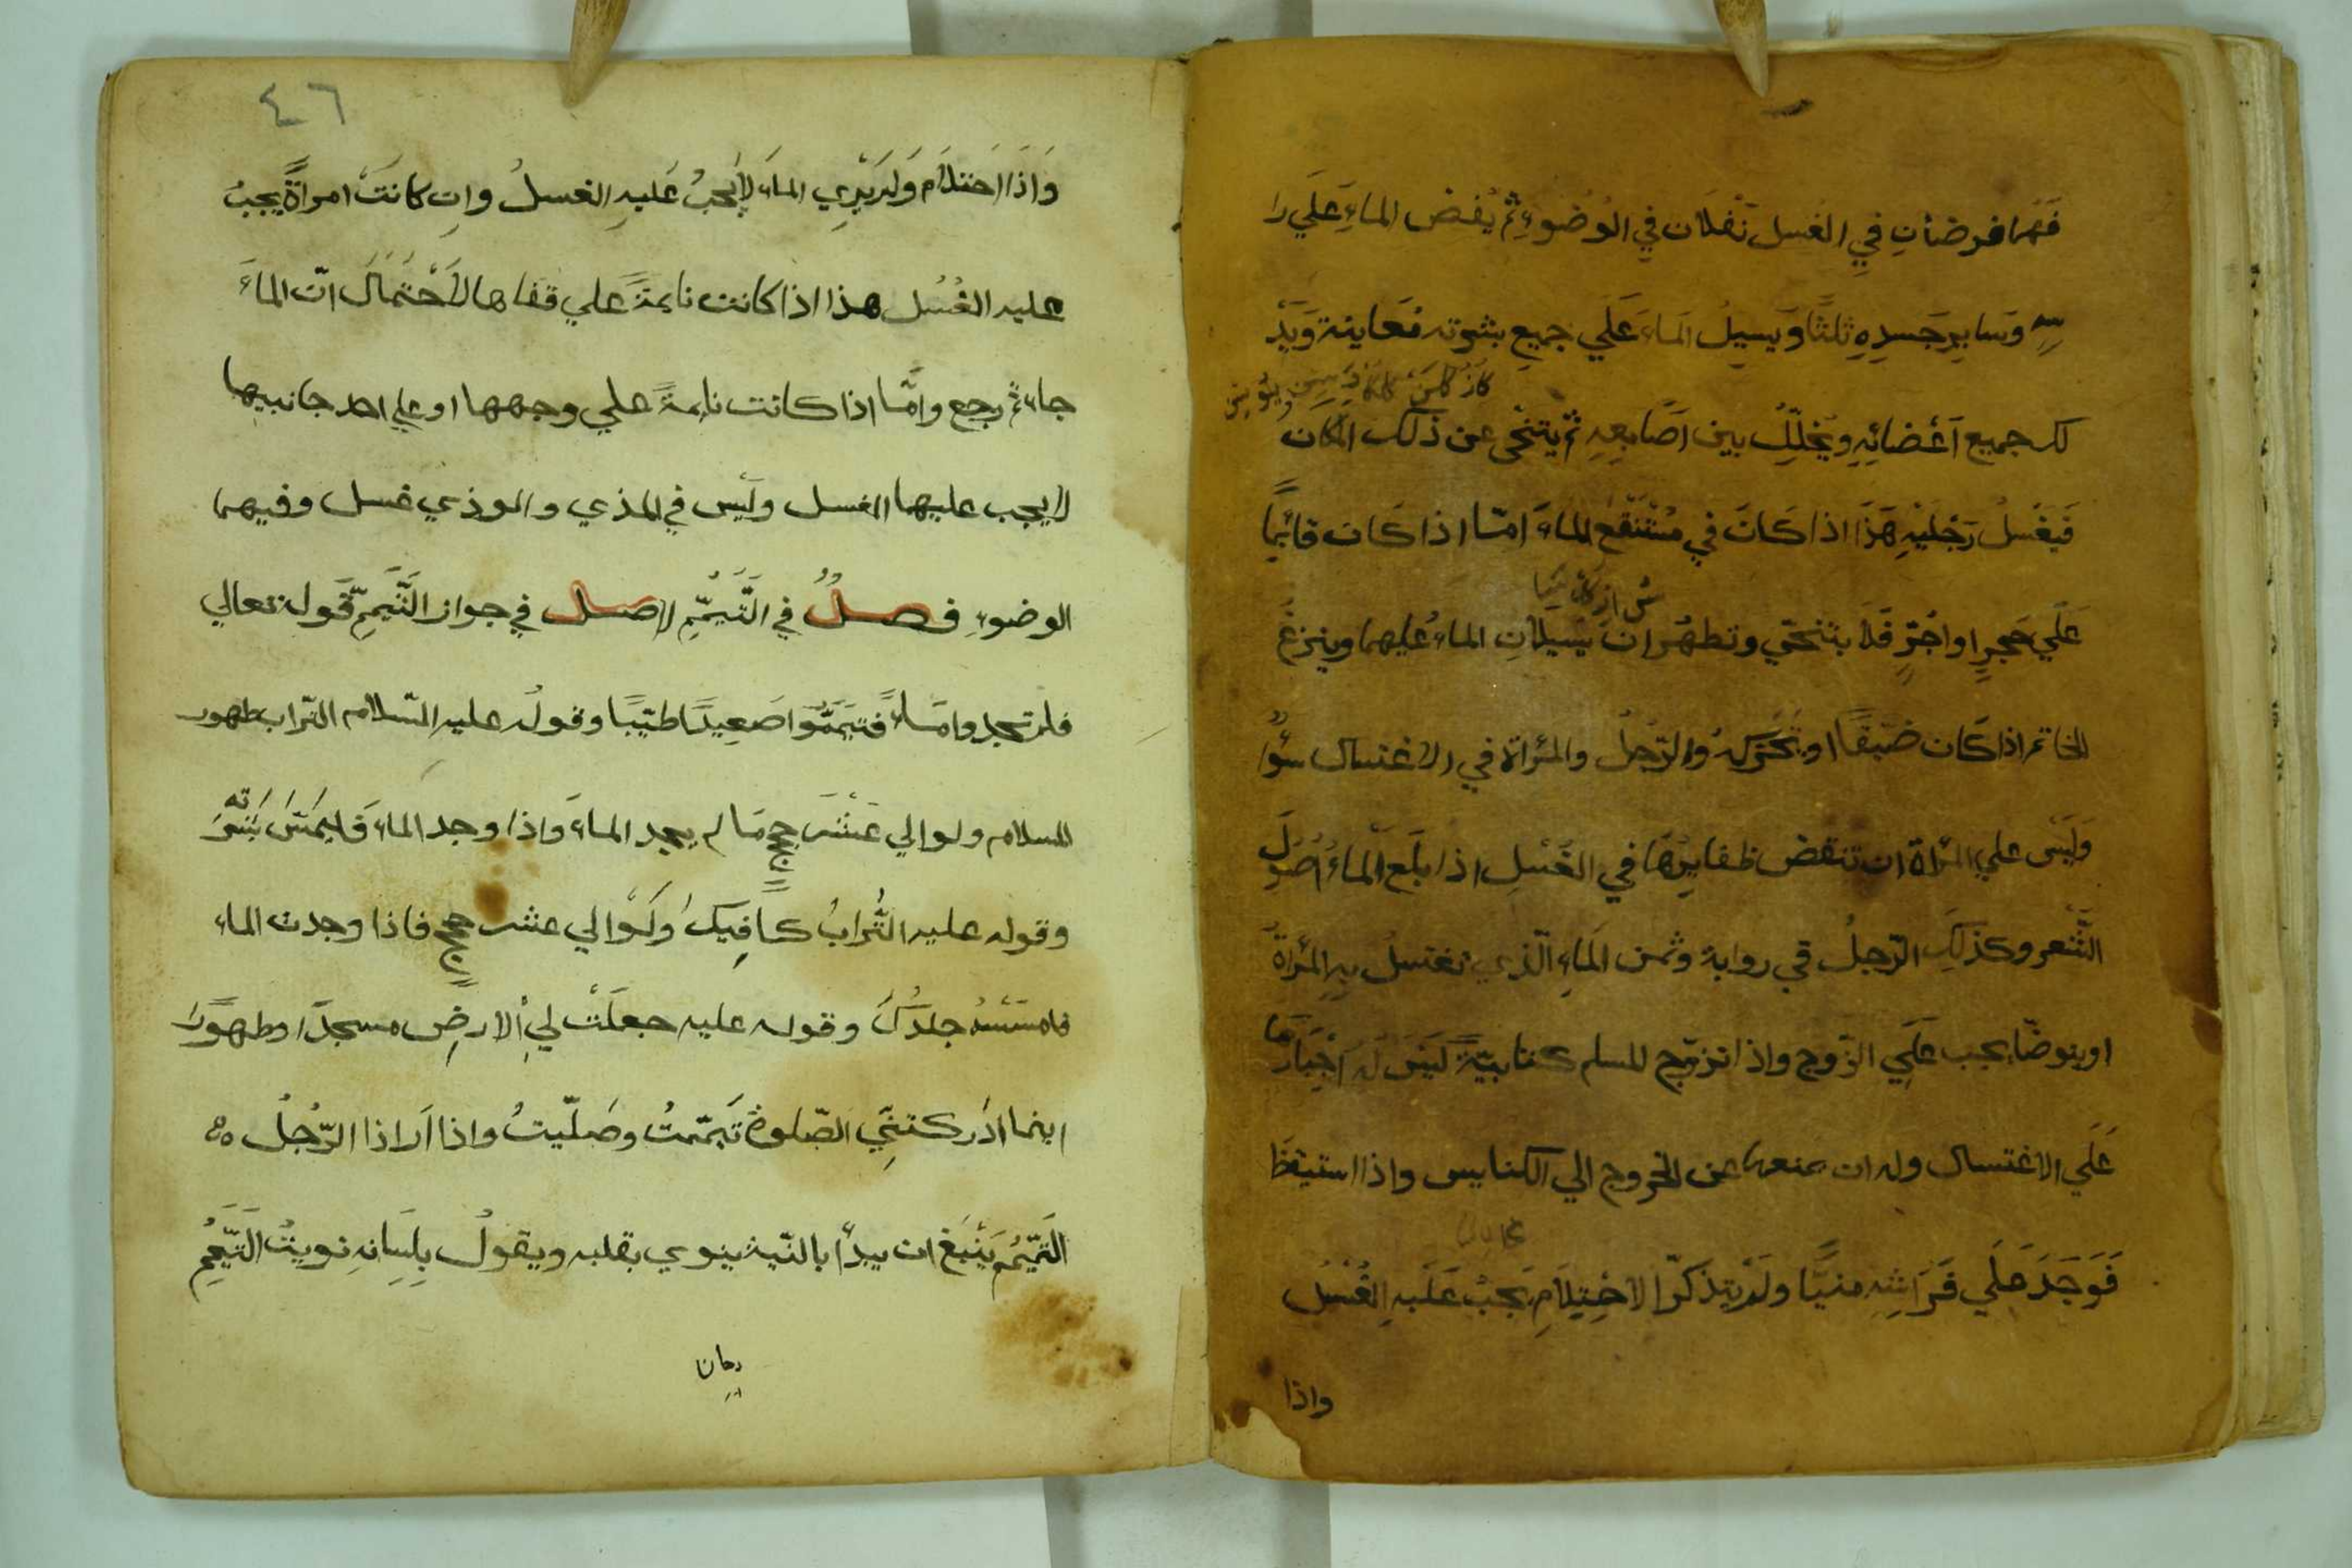 فهما فرضان في الغسل نفلان في الوضوءِ ثم يُفض الماءَ علَي را
سِهِ وسايرِ جَسدِهِ ثلثًا وَيسيلُ الماءَ عَلَي جميعِ بشرته مُعاينة وَيَدْ
لك جميع اَعْضائِهِ ويُخلّلُ بين اَصَابعِهِ ثمّ يتنحّى عن ذلك المكان
فَيغْسلُ رَجْليْهِ هَذَا اذا كانَ في مُسْتَنْقَعِ الماءَ امّا اذا كَان قائمًا
عَلَي حَجرٍ او اجُرٍّ فَلا يتنحّي وتطهّران بسيلانِ الماءُ عليهما وينزعُ
الخاتم اذا كَان ضيّقًا او يُحَرّكهُ والرّجلُ والمرْاة في الاغتسال سَوَُا
وَليْسَ علي المرْاة ان تنقض ظفايرها في الغُسْلِ اذا بلَغ الماءُ اصُولَ
الشَّعر وكذلكِ الرّجلُ في رواية وثمن الماءِ الّذي تغتسلُ بهِ المرْاةُ
او يتوضّا يجب علَي الزّوج واذا تزوّج المسلم كتابيّةً ليْسَ لَهُ اجْبَارهَا
عَلَي الاغتسال وله ان يمنعها عن الخروج الي الكنايس واذا استيقظَ
فَوَجَدَ عَلَي فَرَاشِه منيًّا ولَمْ يتذكّرا الاحْتِلَامِ يجبُ عَلَيهِ الغُسْلُ
واذا
٤٦
وَاذَا احَتلاَم وَلم يَرِي الماءَ لا يجبُ عَليهِ الغسلُ وان كانَتَ امراةً يجبُ
عليه الغُسُل هذا اذا كانت نايمةً علي قفاها لاَحْتمَالَ انّ الماءَ
جاء ثم رجع وامّا اذا كانت نايمةً علي وجهها او علي احد جانبيها
لا يجب عليها الغسل وليْس في المذي والوذي غسل وفيهما
الوضوءِ فصلٌ في التَّيمّمِ لاصل في جواز التَّيَمّمِ قَول تعالي
فلم تجدوا مَاءً فتيَمَّمُوا صَعِيدًا طيّبًا وقولُه عليه السّلام التّراب طهور
المسلام ولو الي عَشْرَ حججٍ مَا لم يجد الماءَ وَاذا وجد الماءَ فَليمَسّ بَشَرَتهُ
وقوله عليه التُّرابُ كافِيكَ وَلَوْ الي عشر حججٍ فاذا وجدت الماء
فامسَسْهُ جلدُكَ وقوله عليه جعلَتْ لي الارضِ مسجدًا وطهورًا
اينما ادَركتنِي الصّلوة تَيمّمتُ وصَلّيتُ واذا اَراذا الرّجُلُ ه
التَّيمُّمَ يَنْبَغ ان يبدأ بالنّية ينوي بقلبه ويقولُ بِلِسَانِهِ نويتُ التَّيمُّمِ